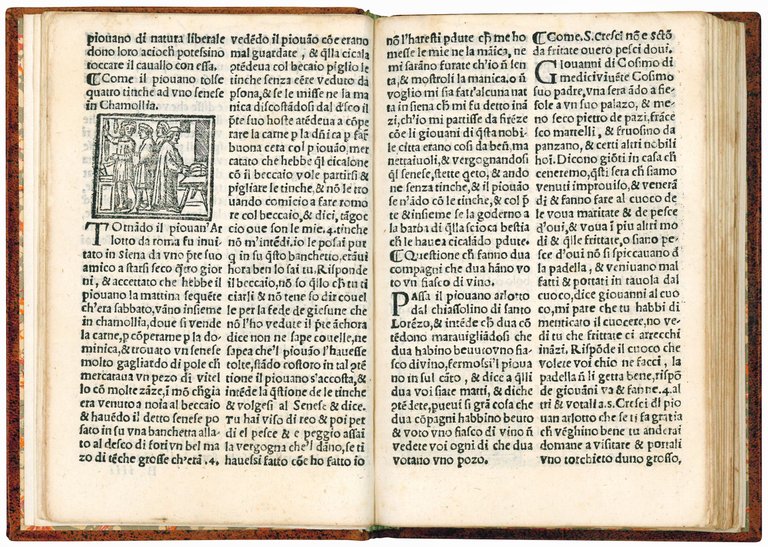 piouano di natura liberale
dono loro acioch potessino
toccare il cauallo con essa.
¶Come il piouano tolse
quattro tinche ad vno senese
in Chamollia.
TOrnãdo il piouan'Ar
lotto da roma fu inui
tato in Siena da vno p̃te suo
amico a starsi seco q̃tro gior
ni, & accettato che hebbe il
piouano la mattina seq̃ẽte
ch'era sabbato, vãno insieme
in chamollia, doue si vende
la carne, p cõperarne p la do-
minica, & trouato vn senese
molto gagliardo di pole ch
mercataua vn pezo di vitel
lo cõ molte zãze, i mõ ch gia
era venuto a noia al becca io
& hauẽdo il detto senese po
sato in su vna banchetta alla
to al desco di fori vn bel ma
zo di tẽche grosse ch'erã .4.
vedẽdo il piouão cõe erano
mal guardate, & q̃lla cicala
ptẽdeua col beccaio piglio le
tinche senza cẽre veduto da
psona, & se le misse ne la ma
nica discostãdosi dal d'sco il
p̃te suo hoste atẽdeua a cõpe
rare la carne p la dñica p far
buona cera col piouão, mer
catato che hebbe q̃l cicalone
cõ il beccaio vole partirsi &
pigliare le tinche, & nõ le tro
uando comicio a fare romo
re col beccaio, & dici, tãgoc
cio oue son le mie .4. tinche
nõ m'intẽdi, io le posai pur
q in su q̃sto banchetto, erãui
hora ben lo sai tu. Risponde
il beccaio, nõ so q̃llo ch tu ti
ciarli & nõ tene so dir couel
le per la fede di giesune che
nõ l'ho vedute il p̃te ãchora
dice non ne sape couelle, ne
sapea che'l piouão l'hauesse
tolte, stãdo costoro in tal ptẽ
tione il piouano s'accosta, &
intẽde la q̃stione de le tinche
& volgesi al Senese & dice.
Tu hai viso di reo & poi per
di el pesce & e peggio assai
la vergogna che'l dãno, se ti
hauessi fatto cõe ho fatto io
nõ l'haresti pdute ch me ho
messe le mie ne la mãica, ne
mi sarãno furate ch'io nõ sen
ta, & mostroli la manica, o ñ
voglio mi sia fatt'alcuna nat
ta in siena ch mi fu detto inã
zi, ch'io mi partisse da firẽze
cõe li giouani di q̃sta nobi-
le citta erano cosi da bẽ & ma
nettaiuoli, & vergognandosi
q̃l senese, stette q̃eto, & ando
ne senza tinche, & il piouão
se n'ãdo cõ le tinche, & col p̃
te & insieme se la goderno a
la barba di q̃lla scioca bestia
ch le hauea cicalãdo pdute.
¶Questione ch fanno dua
compagni che dua hãno vo
to vn fiasco di vino.
PAssa il piouano arlotto
dal chiassolino di santo
Lorẽzo, & intẽde ch dua cõ
tẽdono marauigliãdosi che
dua habino beuuto vno fia-
sco di vino, fermossi'l pioua
no in sul cãto, & dice a q̃lli
dua voi siate matti, & diche
ptẽdete, pueui si grã cosa che
dua cõpagni habbino beuto
& voto vno fiasco di vino ñ
vedete voi ogni di che dua
votano vno pozo.
¶Come .S. Cresci nõ e sctõ
da fritate ouero pesci doui.
GIouanni di Cosimo di
medici viuẽte Cosimo
suo padre, vna sera ãdo a fie-
sole a vn suo palazo, & me-
no seco pietro de pazi, frãce-
sco martelli, & fruosino da
panzano, & certi altri nobili
hoĩ. Dicono giõti in casa ch
ceneremo, q̃sti sera ch siamo
venuti improuiso, & venerã
di & fanno fare al cuoco de
le voua maritate & de pesce
d'oui, & voua ĩ piu altri mo
di & q̃lle fritate, o siano pe-
sce d'oui nõ si spiccauano ã
la padella, & veniuano mal
fatti & portati in tauola dal
cuoco, dice giouanni al cuo
co, mi pare che tu habbi di-
menticato il cuocere, no ve-
di tu che fritatte ci arrecchi
inãzi. Rispõde il cuoco che
volete voi chio ne facci, la
padella ñ li getta bene, rispõ
de giouãni va & fanne .4. al
tri & votali a .s. Cresci di po
piouan arlotto che se ti fa gratia
ch vẽghino bene tu anderai
domane a visitare & portali
vno torchieto duno grosso,